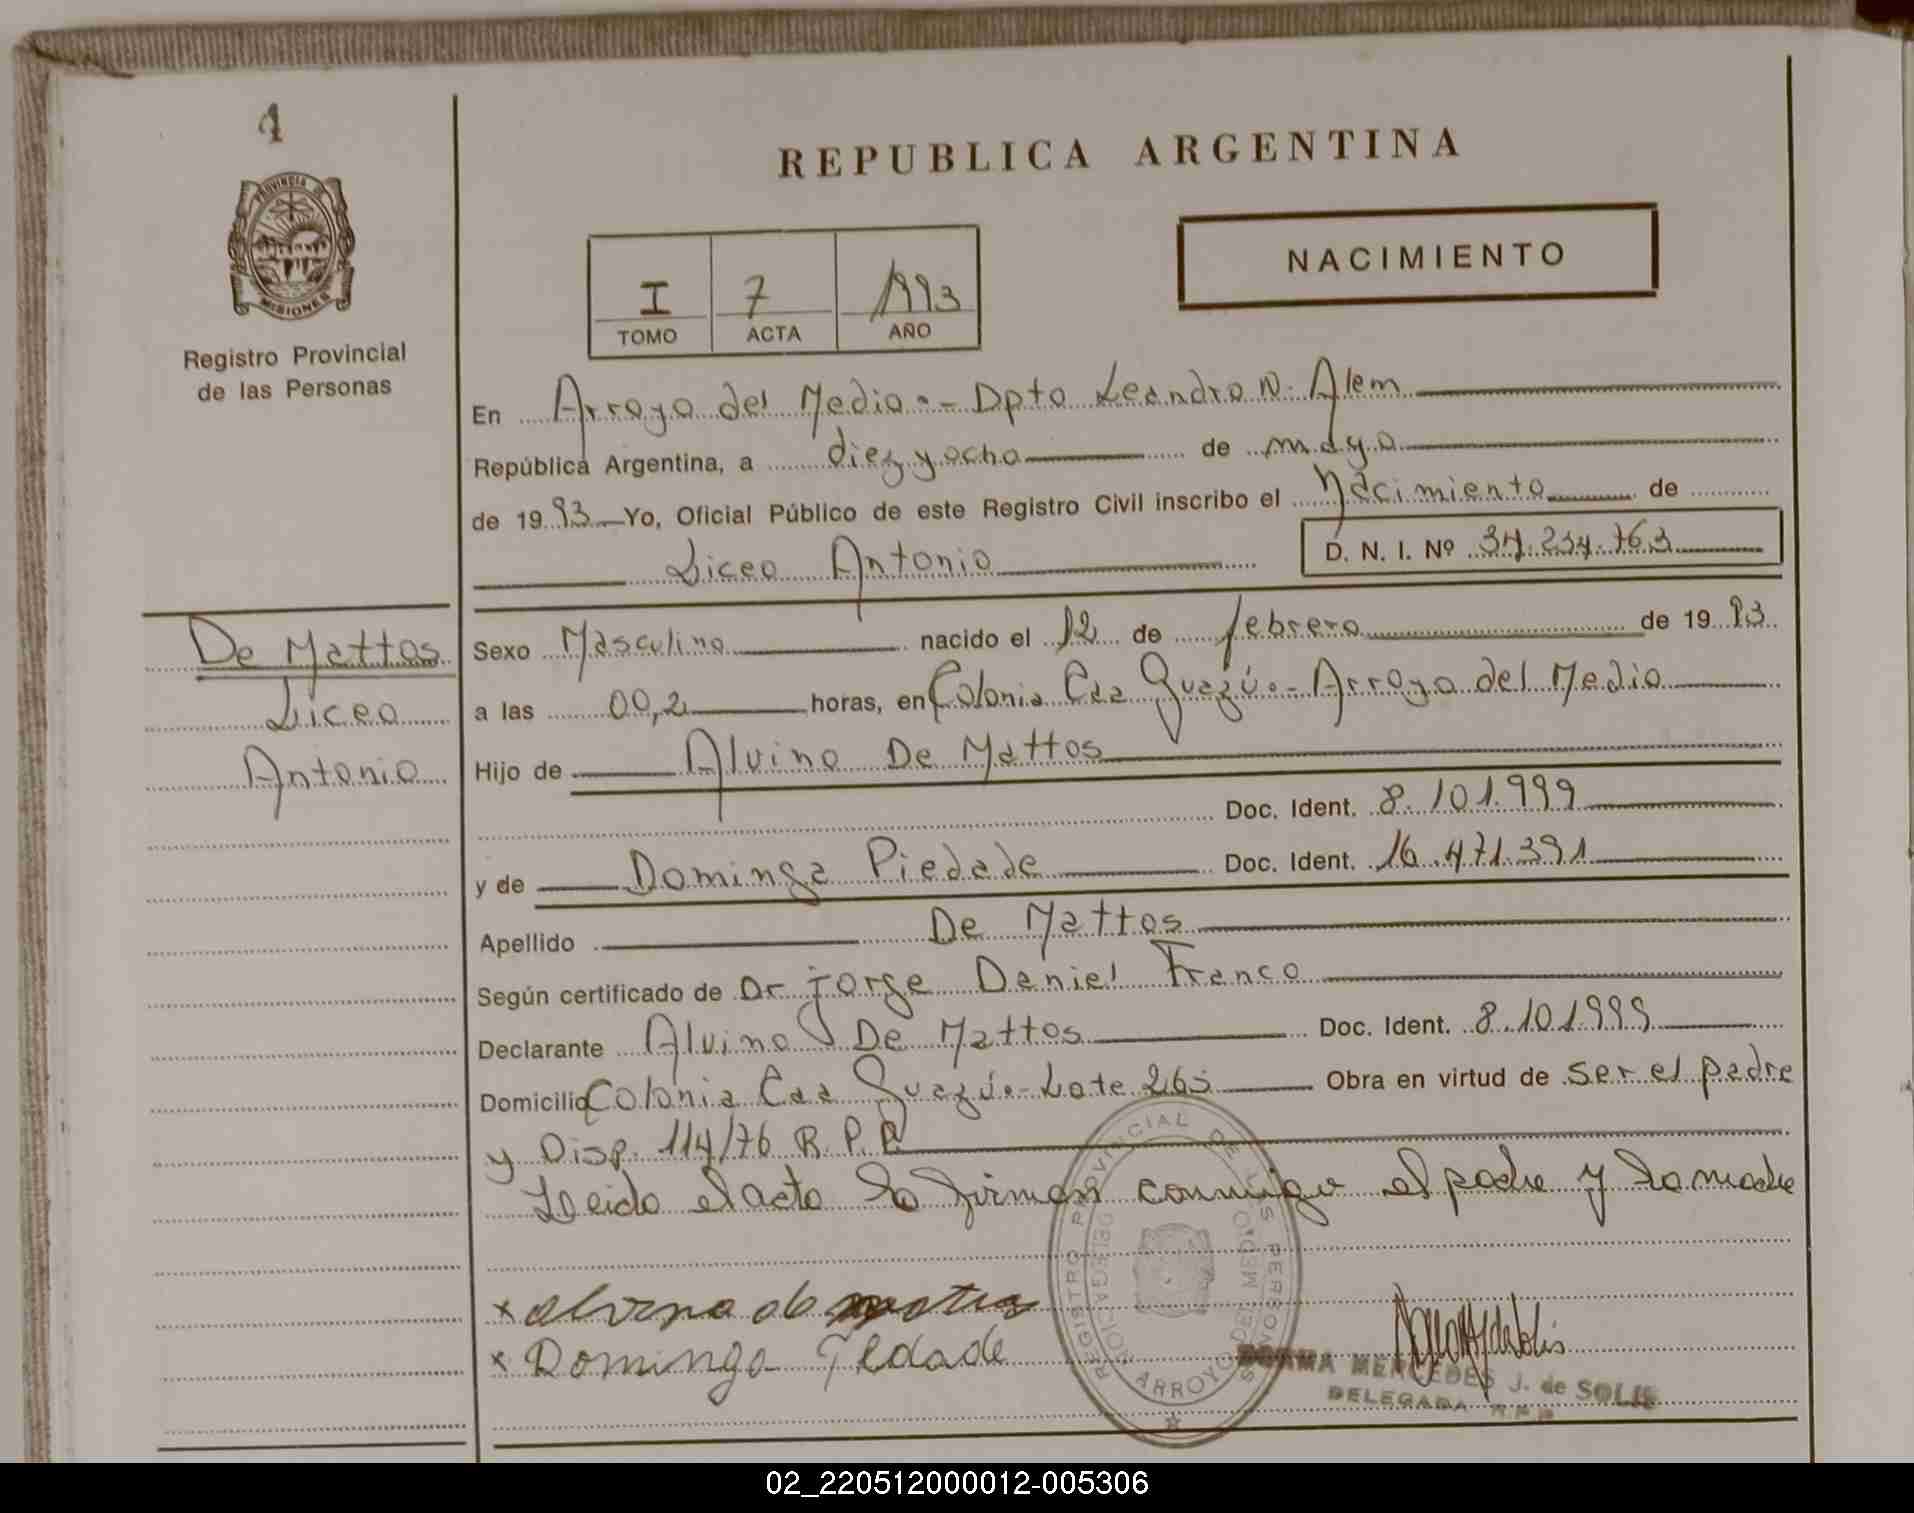 4
PROVINCIA DE
MISIONES
Registro Provincial
de las Personas
REPUBLICA ARGENTINA
NACIMIENTO
I 7 1993
TOMO ACTA AÑO
En Arroyo del Medio.- Dpto Leandro N. Alem
República Argentina, a diez y ocho de mayo
de 1993 Yo, Oficial Público de este Registro Civil inscribo el Nacimiento de
Liceo Antonio D. N. I. Nº 34.234.763
De Mattos
Liceo
Antonio
Sexo Masculino nacido el 12 de febrero de 1993
a las 00,2 horas, en Colonia Caa Guazú.- Arroyo del Medio
Hijo de Alvino De Mattos
Doc. Ident. 8.101.999
y de Dominga Piedade Doc. Ident. 16.471.391
Apellido De Mattos
Según certificado de Dr. Jorge Daniel Franco
Declarante Alvino De Mattos Doc. Ident. 8.101.999
Domicilio Colonia Caa Guazú.- Lote 265 Obra en virtud de ser el padre
y Disp. 114/76 R. P. P.
Leida el acta la firman conmigo el padre y la madre
REGISTRO PROVINCIAL DE LAS PERSONAS
DELEGACION ARROYO DEL MEDIO
x alvino de matos
x Dominga Pedade
NORMA MERCEDES J. de SOLIS
DELEGADA R.P.P.
02_220512000012-005306